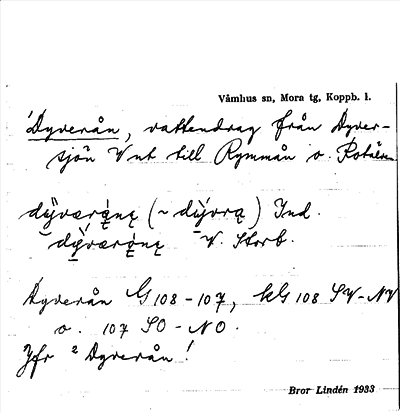 Våmhus sn, Mora tg, Koppb. l.
¹Dyverån, vattendrag från Dyver-
sjön V ut till Rymmån o. Rotälven
Ind.
V. Storb.
Dyverån G 108-107, kG 108 SV-NV
o. 107 SO-NO.
Jfr ² Dyverån!
Bror Lindén 1933